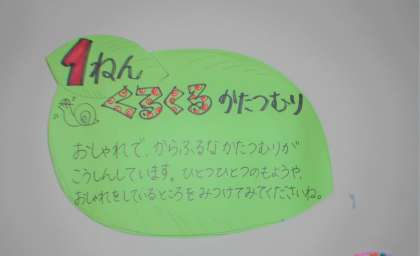 1ねん
くるくる かたつむり
おしゃれで、からふるな かたつむりが
こうしんしています。ひとつひとつのもようや、
おしゃれをしているところを みつけてみてくださいね。